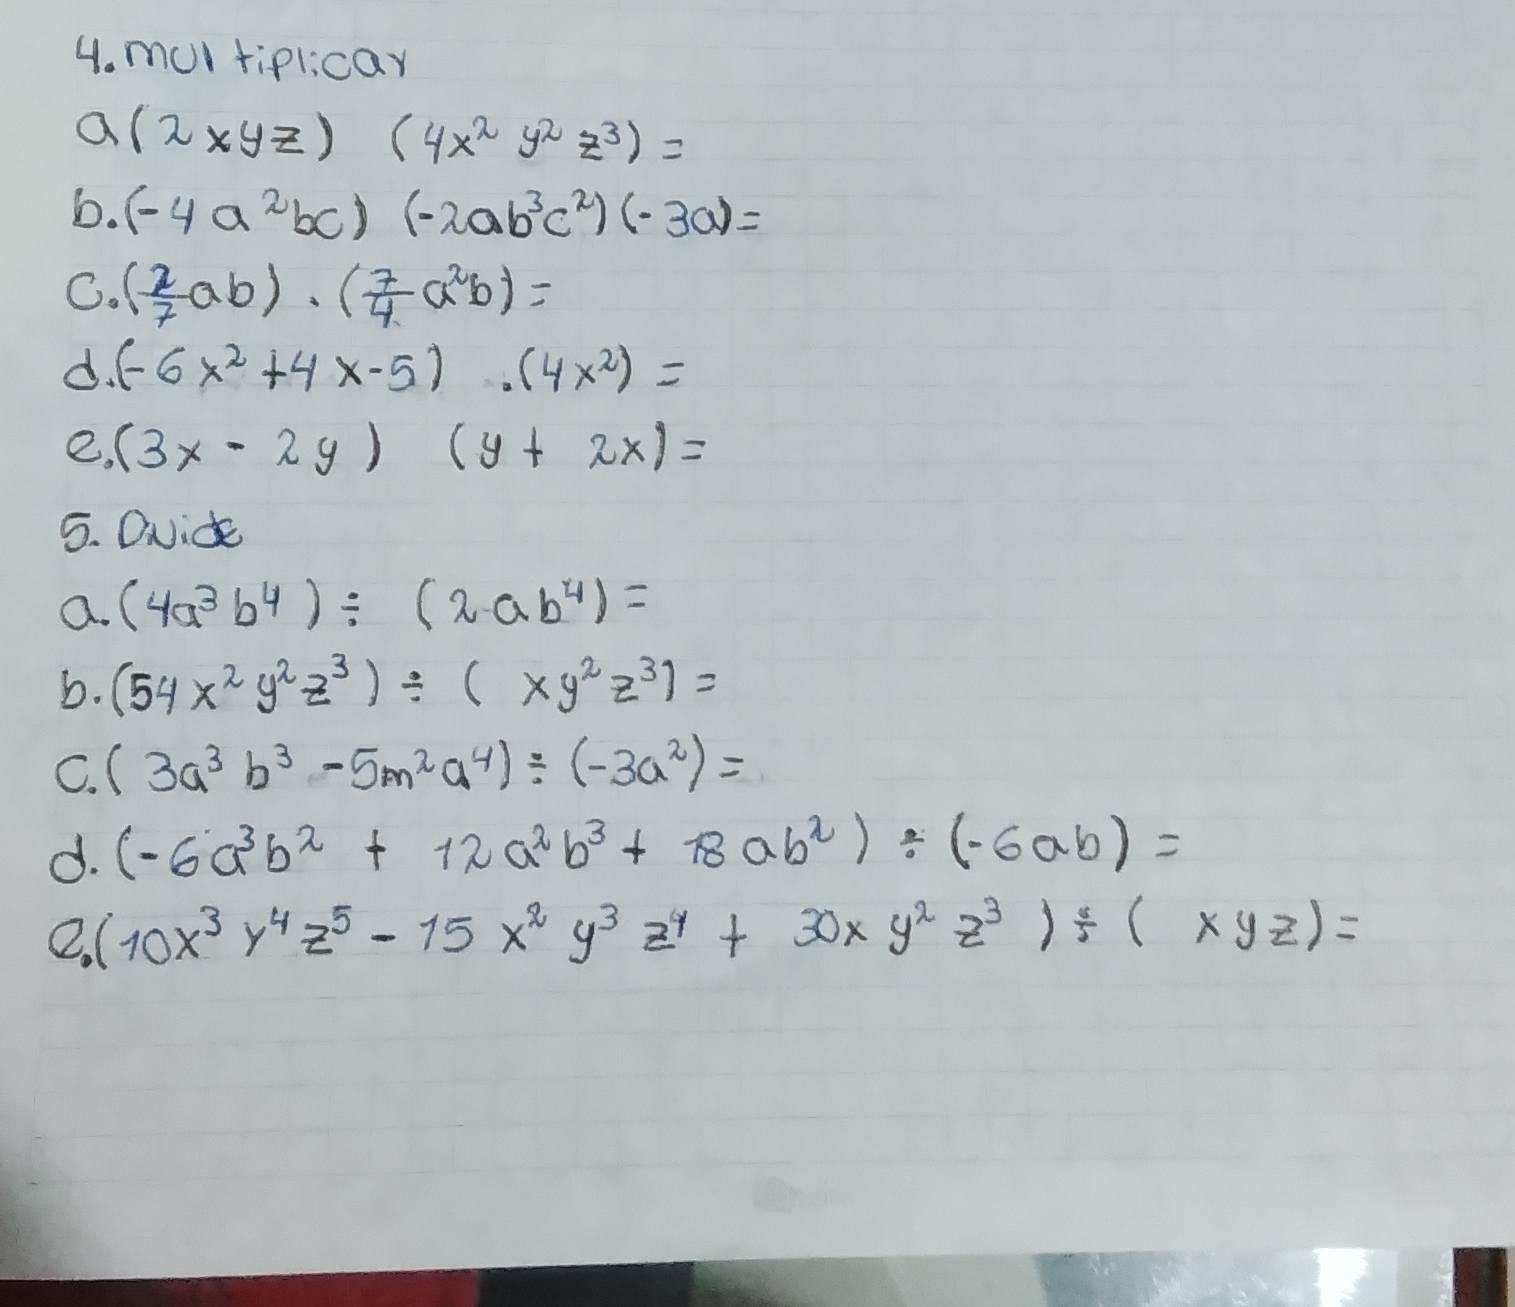 4. multiplicar
a(2xyz) (4x² y² z³) =
b.(-4a²bc) (-2ab³c²)(-3a)=
c.(2/7 ab) . (7/4 a²b) =
d.(-6x² +4x-5) .(4x²) =
e.(3x - 2y) (y + 2x) =
5. Divide
a.(4a³b⁴) ÷ (2ab⁴) =
b.(54x²y²z³) ÷ ( xy²z³) =
c.( 3a³ b³ -5m²a⁴) ÷ (-3a²) =
d.(-6a³b² + 12a²b³ + 18ab²) ÷ (-6ab) =
e.(10x³y⁴z⁵ - 15x²y³z⁴ + 30xy²z³) ÷ ( xyz) =